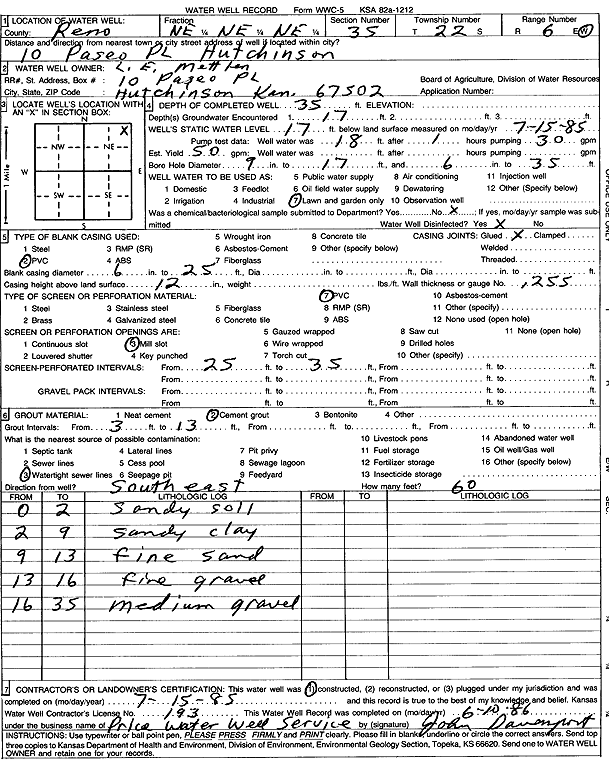 WATER WELL RECORD Form WWC-5 KSA 82a-1212
1 LOCATION OF WATER WELL: Fraction Section Number Township Number Range Number
County: Reno NE ¼ NE ¼ NE ¼ 35 T 22 S R 6 E/W
Distance and direction from nearest town or city street address of well if located within city?
10 Paseo PL Hutchinson
2 WATER WELL OWNER: L. E. Metten
RR#, St. Address, Box # : 10 Paseo PL Board of Agriculture, Division of Water Resources
City, State, ZIP Code : Hutchinson Kan. 67502 Application Number:
3 LOCATE WELL'S LOCATION WITH AN "X" IN SECTION BOX:
N
X
NW NE
W E
SW SE
S
1 Mile
4 DEPTH OF COMPLETED WELL 35 ft. ELEVATION:
Depth(s) Groundwater Encountered 1. 17 ft. 2. ft. 3. ft.
WELL'S STATIC WATER LEVEL 17 ft. below land surface measured on mo/day/yr 7-15-85
Pump test data: Well water was 18 ft. after 1 hours pumping 30 gpm
Est. Yield 50 gpm: Well water was ft. after hours pumping gpm
Bore Hole Diameter 9 in. to 17 ft., and 6 in. to 35 ft.
WELL WATER TO BE USED AS: 5 Public water supply 8 Air conditioning 11 Injection well
1 Domestic 3 Feedlot 6 Oil field water supply 9 Dewatering 12 Other (Specify below)
2 Irrigation 4 Industrial 7 Lawn and garden only 10 Observation well
Was a chemical/bacteriological sample submitted to Department? Yes No X ; If yes, mo/day/yr sample was submitted
Water Well Disinfected? Yes X No
5 TYPE OF BLANK CASING USED: 5 Wrought iron 8 Concrete tile CASING JOINTS: Glued X Clamped
1 Steel 3 RMP (SR) 6 Asbestos-Cement 9 Other (specify below) Welded
2 PVC 4 ABS 7 Fiberglass Threaded
Blank casing diameter 6 in. to 25 ft., Dia in. to ft., Dia in. to ft.
Casing height above land surface 12 in., weight lbs./ft. Wall thickness or gauge No. .255
TYPE OF SCREEN OR PERFORATION MATERIAL: 7 PVC 10 Asbestos-cement
1 Steel 3 Stainless steel 5 Fiberglass 8 RMP (SR) 11 Other (specify)
2 Brass 4 Galvanized steel 6 Concrete tile 9 ABS 12 None used (open hole)
SCREEN OR PERFORATION OPENINGS ARE: 5 Gauzed wrapped 8 Saw cut 11 None (open hole)
1 Continuous slot 3 Mill slot 6 Wire wrapped 9 Drilled holes
2 Louvered shutter 4 Key punched 7 Torch cut 10 Other (specify)
SCREEN-PERFORATED INTERVALS: From 25 ft. to 35 ft., From ft. to ft.
From ft. to ft., From ft. to ft.
GRAVEL PACK INTERVALS: From ft. to ft., From ft. to ft.
From ft. to ft., From ft. to ft.
6 GROUT MATERIAL: 1 Neat cement 2 Cement grout 3 Bentonite 4 Other
Grout Intervals: From 3 ft. to 13 ft., From ft. to ft., From ft. to ft.
What is the nearest source of possible contamination: 10 Livestock pens 14 Abandoned water well
1 Septic tank 4 Lateral lines 7 Pit privy 11 Fuel storage 15 Oil well/Gas well
2 Sewer lines 5 Cess pool 8 Sewage lagoon 12 Fertilizer storage 16 Other (specify below)
3 Watertight sewer lines 6 Seepage pit 9 Feedyard 13 Insecticide storage
Direction from well? South east How many feet? 60
FROM TO LITHOLOGIC LOG FROM TO LITHOLOGIC LOG
0 2 Sandy soil
2 9 sandy clay
9 13 fine sand
13 16 fine gravel
16 35 medium gravel
7 CONTRACTOR'S OR LANDOWNER'S CERTIFICATION: This water well was (1) constructed, (2) reconstructed, or (3) plugged under my jurisdiction and was
completed on (mo/day/year) 7-15-85 and this record is true to the best of my knowledge and belief. Kansas
Water Well Contractor's License No. 193 This Water Well Record was completed on (mo/day/yr) 6-10-86
under the business name of Price Water Well Service by (signature) John Davenport
INSTRUCTIONS: Use typewriter or ball point pen, PLEASE PRESS FIRMLY and PRINT clearly. Please fill in blanks, underline or circle the correct answers. Send top
three copies to Kansas Department of Health and Environment, Division of Environment, Environmental Geology Section, Topeka, KS 66620. Send one to WATER WELL
OWNER and retain one for your records.
OFFICE USE ONLY